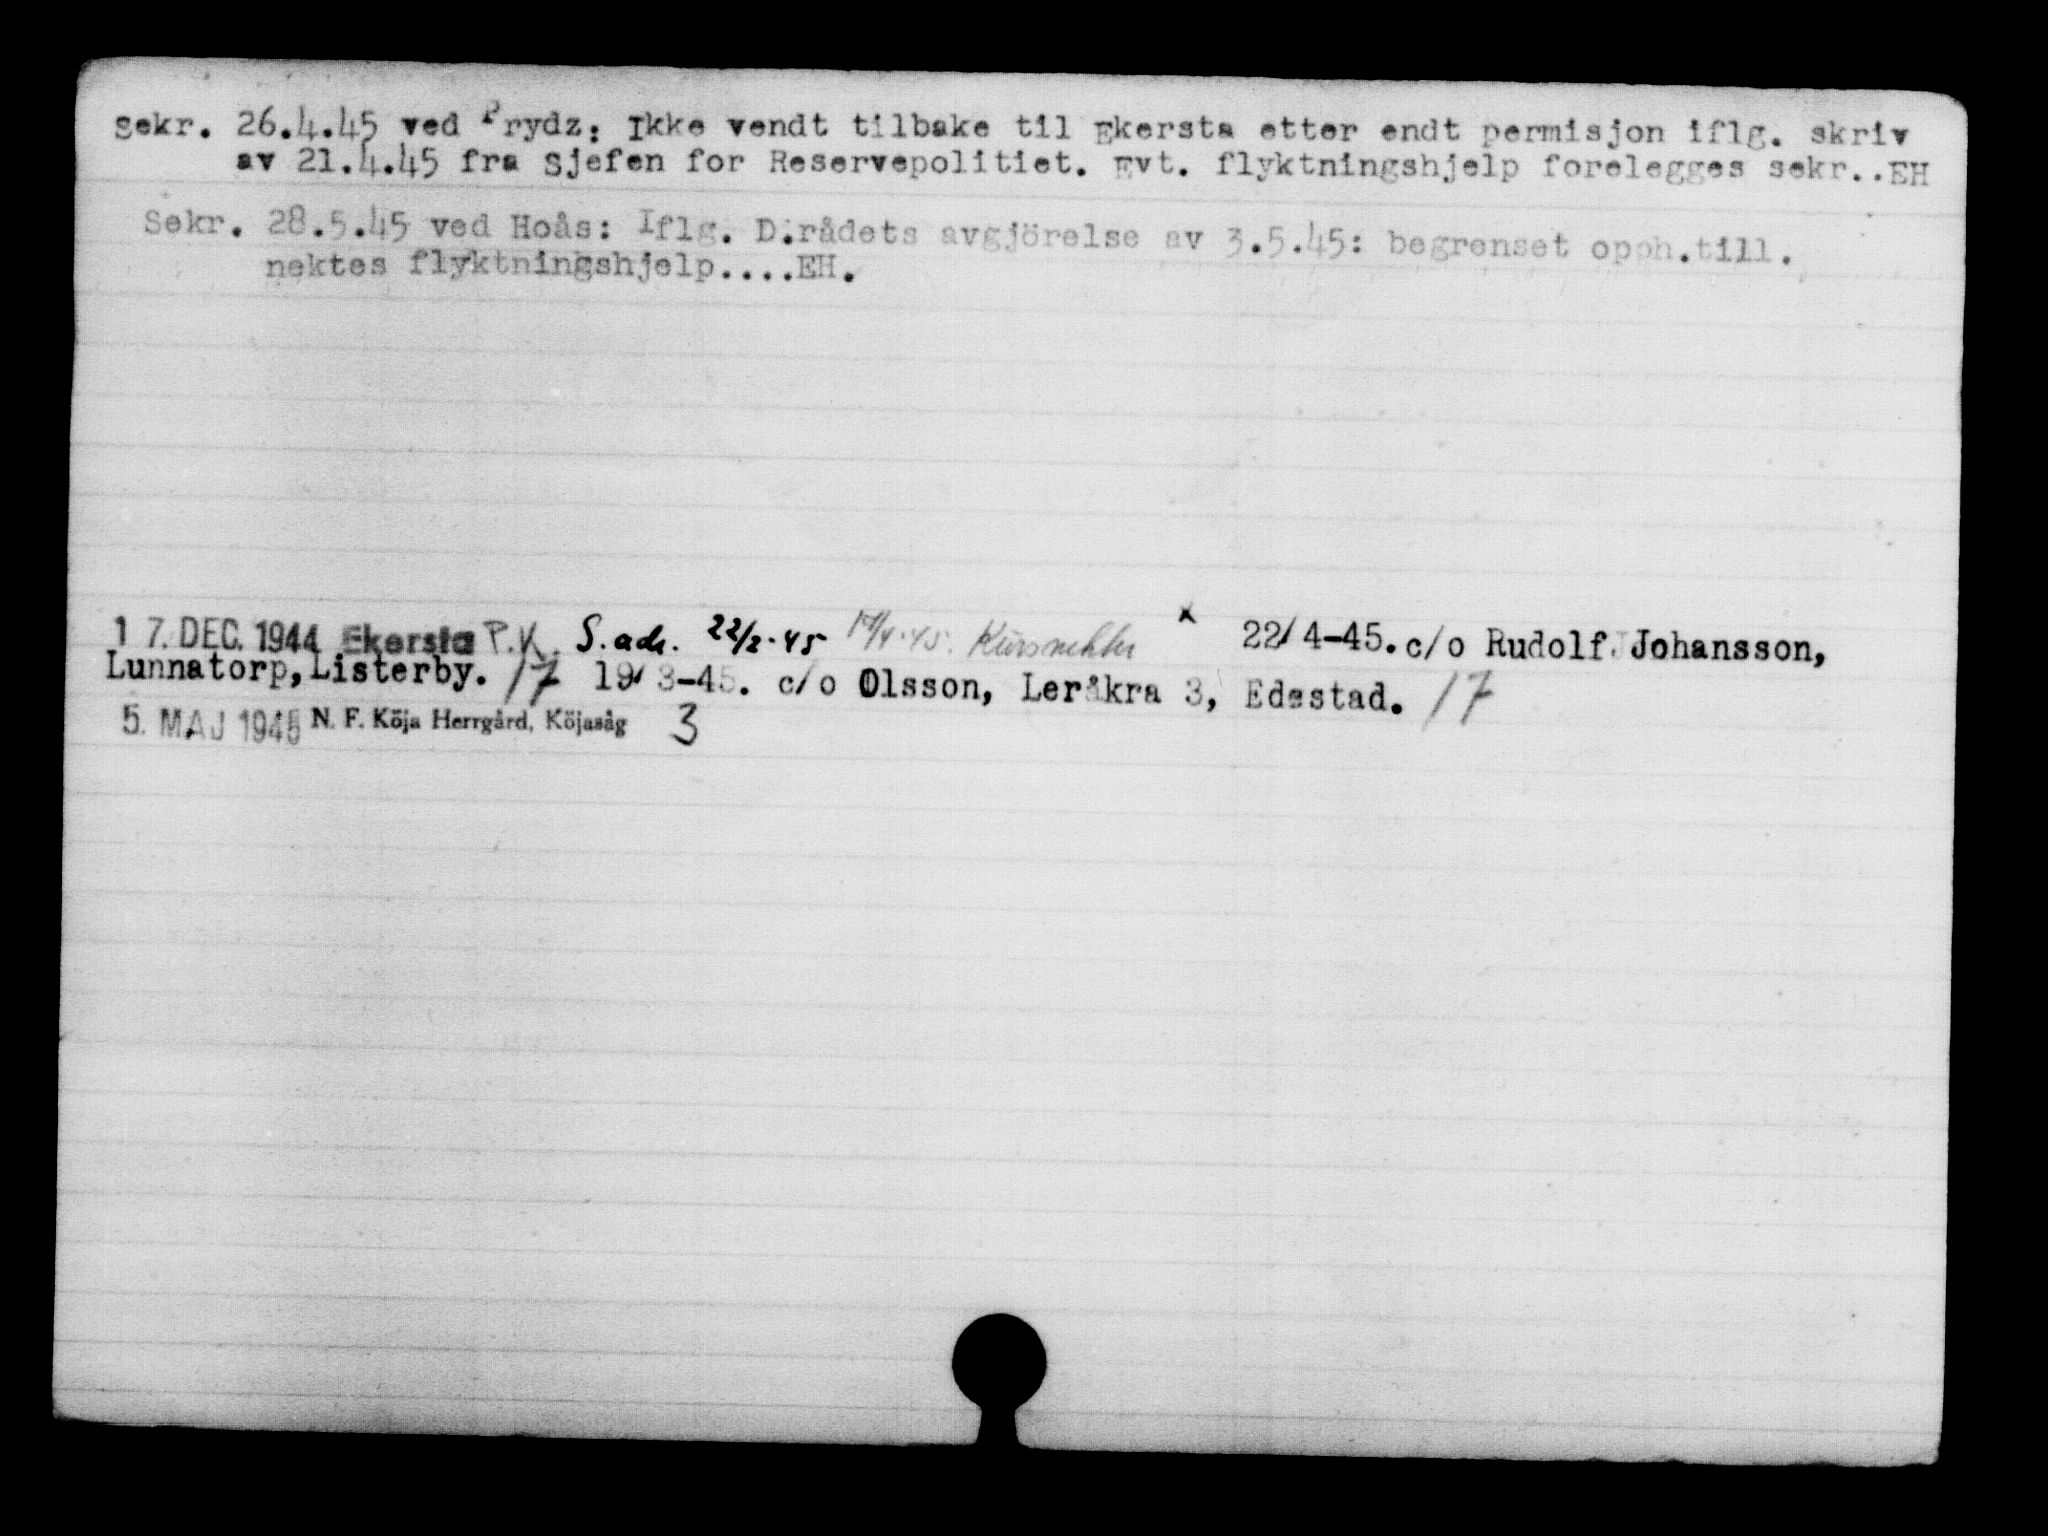 Sekr. 26.4.45 ved Prydz: Ikke vendt tilbake til Ekersta etter endt permisjon iflg. skriv
av 21.4.45 fra Sjefen for Reservepolitiet. Evt. flyktningshjelp forelegges sekr..EH
Sekr. 28.5.45 ved Hoås: Iflg. D.rådets avgjörelse av 3.5.45: begrenset opph.till.
nektes flyktningshjelp....EH.
1 7. DEC. 1944 Ekersta P.K. S. adr. 22/2-45 22/4-45. c/o Rudolf Johansson,
Lunnatorp, Listerby. 17 19/3-45. c/o Olsson, Leråkra 3, Edestad. 17
5. MAJ 1945 N. F. Köja Herrgård, Köjasåg 3